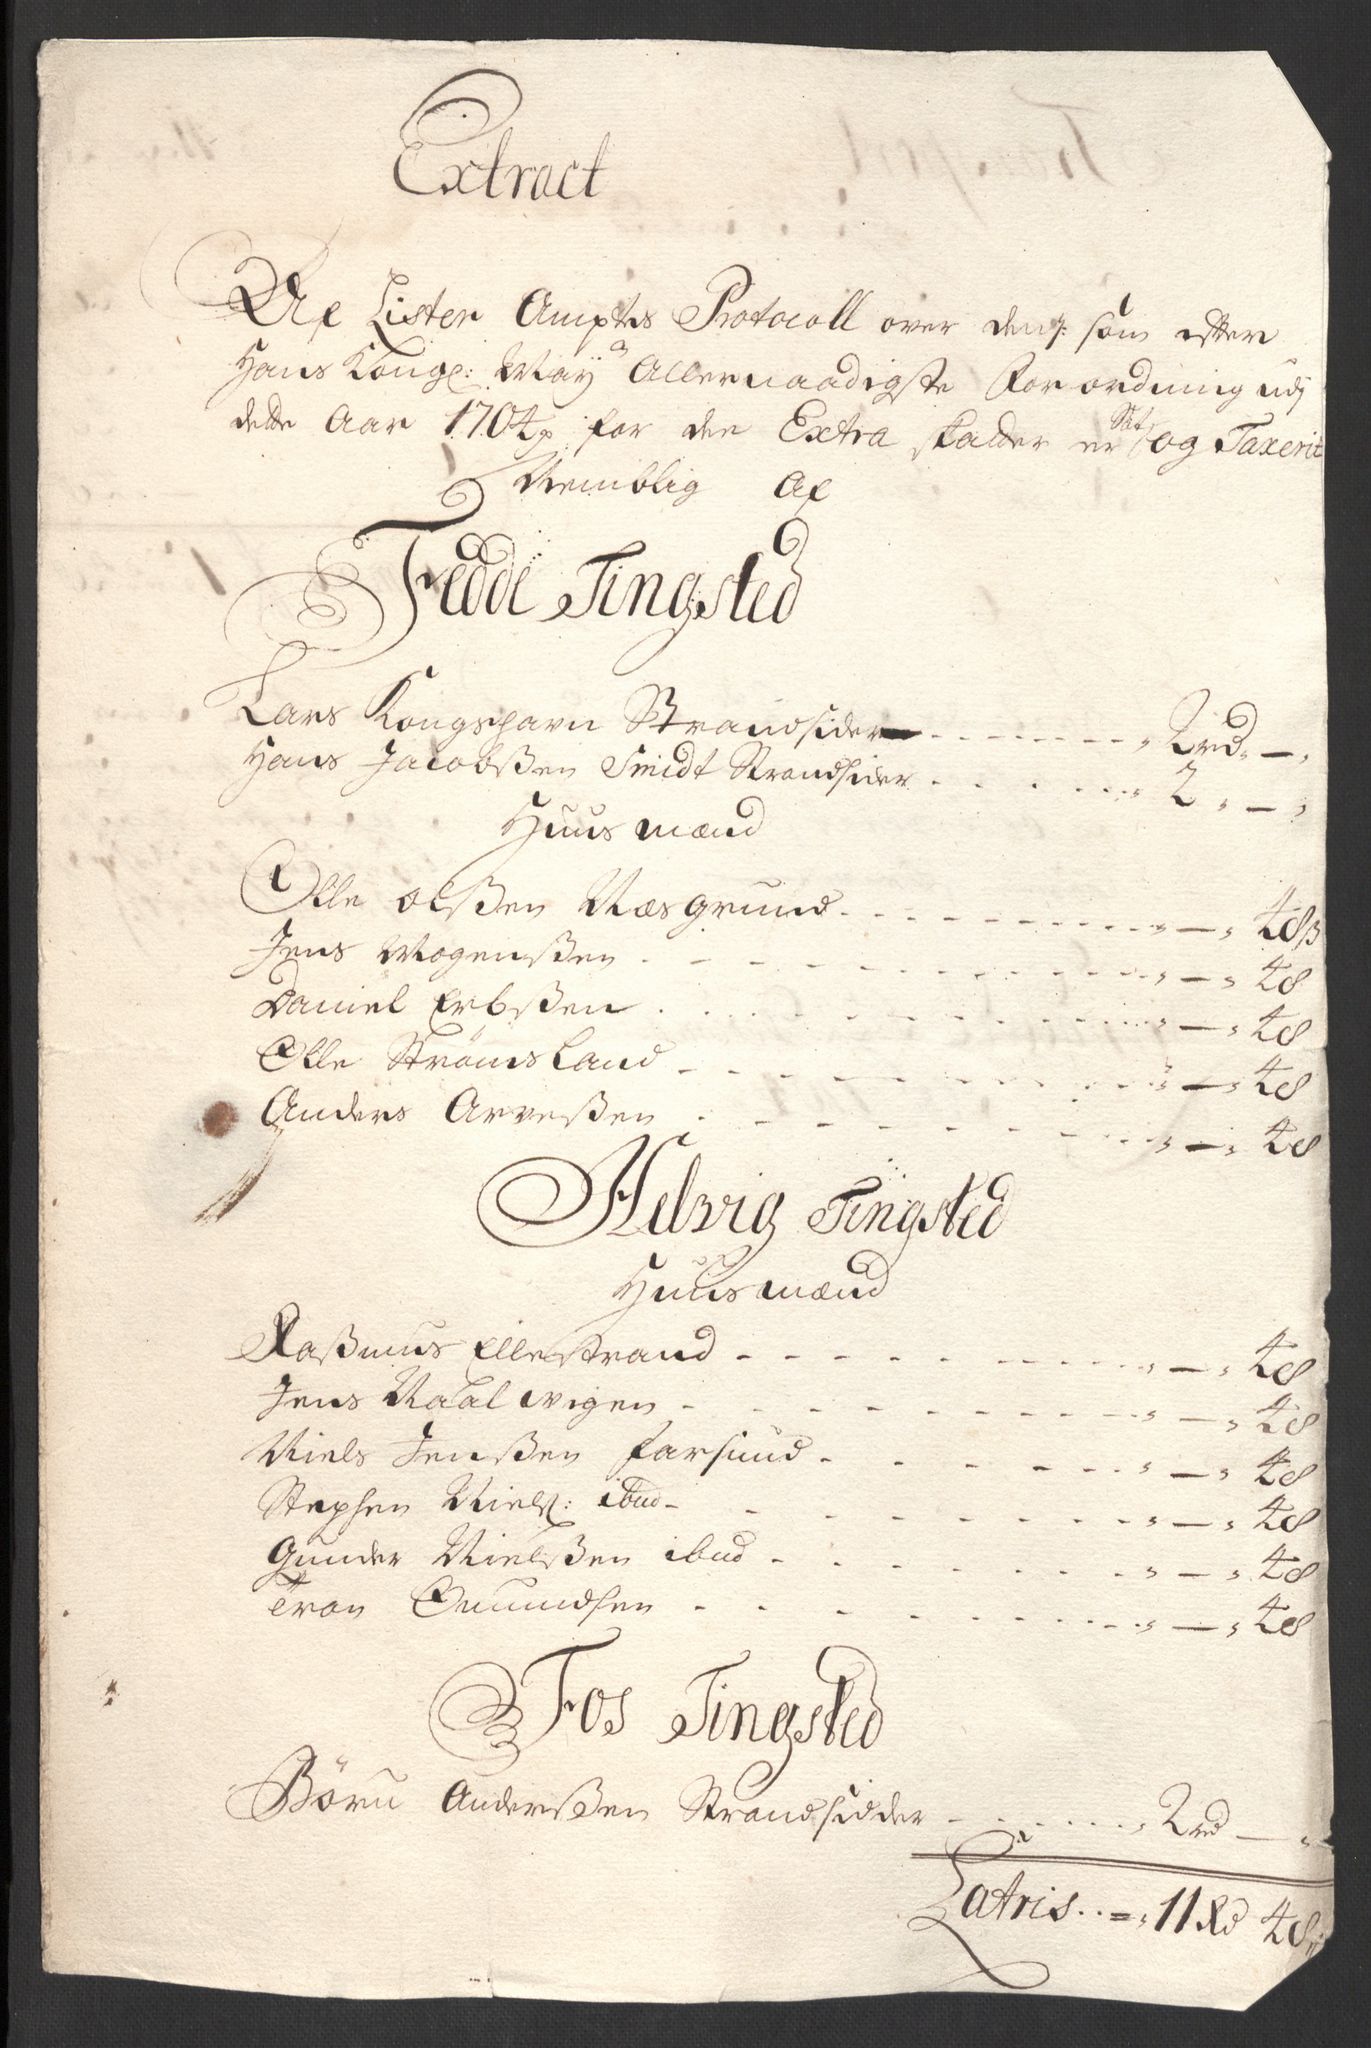 Extract
Af Lister Ampts Protocoll over dem som efter
Hans Kongl: May Allernaadigste Forordning udj
dette Aar 1704 for den Extra skatter er Sat og Taxerit
Nemblig Af
Fedde Tingsted
Lars Kongshavn Strandsider - - - - - - - 2 rd - "
Hans Jacobßen Smidt Strandsider - - - - - 2 " - "
Huusmænd
Olle Olßen Næsgrund - - - - - - " - " 48 ß
Jens Mogenßen - - - - - - " - " 48
Daniel Erbßen - - - - - - " - " 48
Olle Strømsland - - - - - - " - " 48
Anders Arveßen - - - - - - " - " 48
Helvig Tingsted
Huusmænd
Raßmus Ellestrand - - - - - - " - " 48
Jens Naalwigen - - - - - - " - " 48
Niels Jenßen Farsund - - - - - - " - " 48
Stephen Niels: ibud - - - - - - " - " 48
Gunder Nielßen ibud - - - - - - " - " 48
Tron Omundsen - - - - - - " - " 48
Fos Tingsted
Börn Anderßen Strandsidder - - - - - 2 rd - "
Latris - - " 11 Rd 48 ß